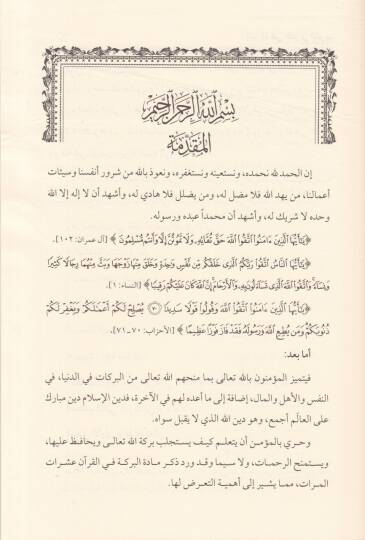 بسم الله الرحمن الرحيم
المقدمة
إن الحمد لله نحمده، ونستعينه ونستغفره، ونعوذ بالله من شرور أنفسنا وسيئات
أعمالنا، من يهد الله فلا مضل له، ومن يضلل فلا هادي له، وأشهد أن لا إله إلا الله
وحده لا شريك له، وأشهد أن محمداً عبده ورسوله.
﴿يَٰٓأَيُّهَا ٱلَّذِينَ ءَامَنُوا۟ ٱتَّقُوا۟ ٱللَّهَ حَقَّ تُقَاتِهِۦ وَلَا تَمُوتُنَّ إِلَّا وَأَنتُم مُّسْلِمُونَ﴾ [آل عمران: ١٠٢].
﴿يَٰٓأَيُّهَا ٱلنَّاسُ ٱتَّقُوا۟ رَبَّكُمُ ٱلَّذِى خَلَقَكُم مِّن نَّفْسٍ وَٰحِدَةٍ وَخَلَقَ مِنْهَا زَوْجَهَا وَبَثَّ مِنْهُمَا رِجَالًا كَثِيرًا
وَنِسَآءً وَٱتَّقُوا۟ ٱللَّهَ ٱلَّذِى تَسَآءَلُونَ بِهِۦ وَٱلْأَرْحَامَ إِنَّ ٱللَّهَ كَانَ عَلَيْكُمْ رَقِيبًا﴾ [النساء: ١].
﴿يَٰٓأَيُّهَا ٱلَّذِينَ ءَامَنُوا۟ ٱتَّقُوا۟ ٱللَّهَ وَقُولُوا۟ قَوْلًا سَدِيدًا (٧٠) يُصْلِحْ لَكُمْ أَعْمَٰلَكُمْ وَيَغْفِرْ لَكُمْ
ذُنُوبَكُمْ وَمَن يُطِعِ ٱللَّهَ وَرَسُولَهُۥ فَقَدْ فَازَ فَوْزًا عَظِيمًا﴾ [الأحزاب: ٧٠-٧١].
أما بعد:
فيتميز المؤمنون بالله تعالى بما منحهم الله تعالى من البركات في الدنيا، في
النفس والأهل والمال، إضافة إلى ما أعده لهم في الآخرة، فدين الإسلام دين مبارك
على العالَم أجمع، وهو دين الله الذي لا يقبل سواه.
وحري بالمؤمن أن يتعلم كيف يستجلب بركة الله تعالى ويحافظ عليها،
ويستمنح الرحمات، ولا سيما وقد ورد ذكر مادة البركة في القرآن عشرات
المرات، مما يشير إلى أهمية التعرض لها.